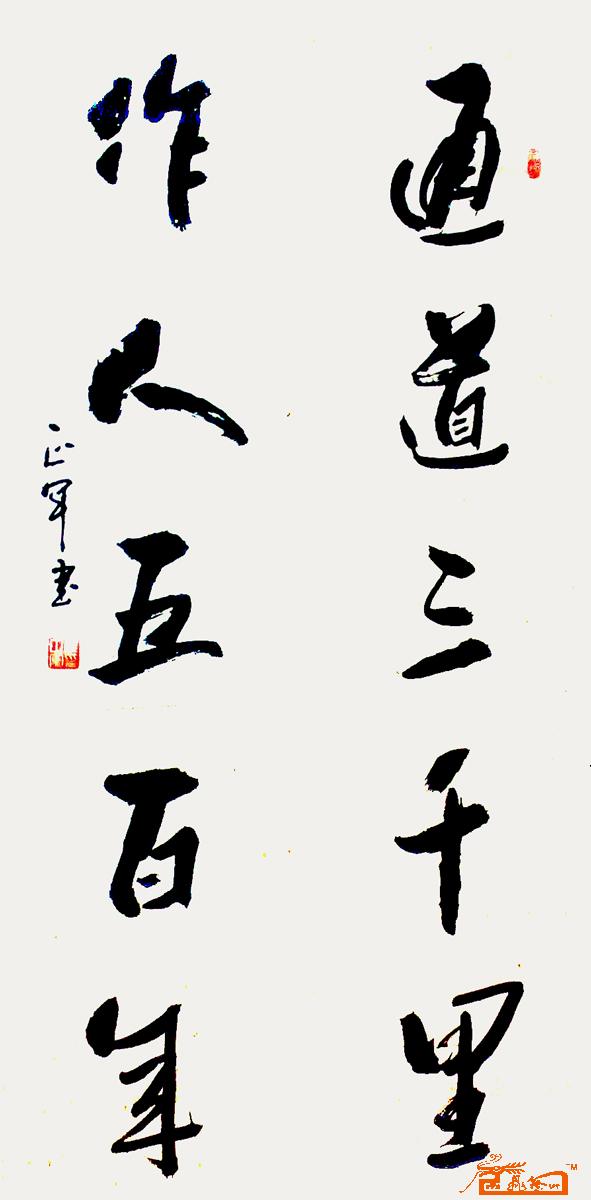 通道三千里
作人五百年
正军书